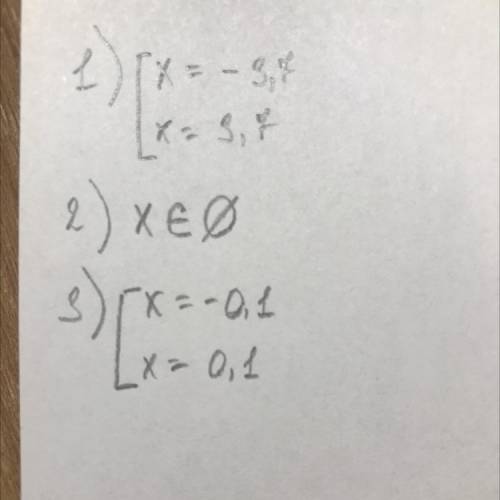 1) [ x = - 3,7
x = 3,7
2) x ∈ Ø
3) [ x = - 0,1
x = 0,1